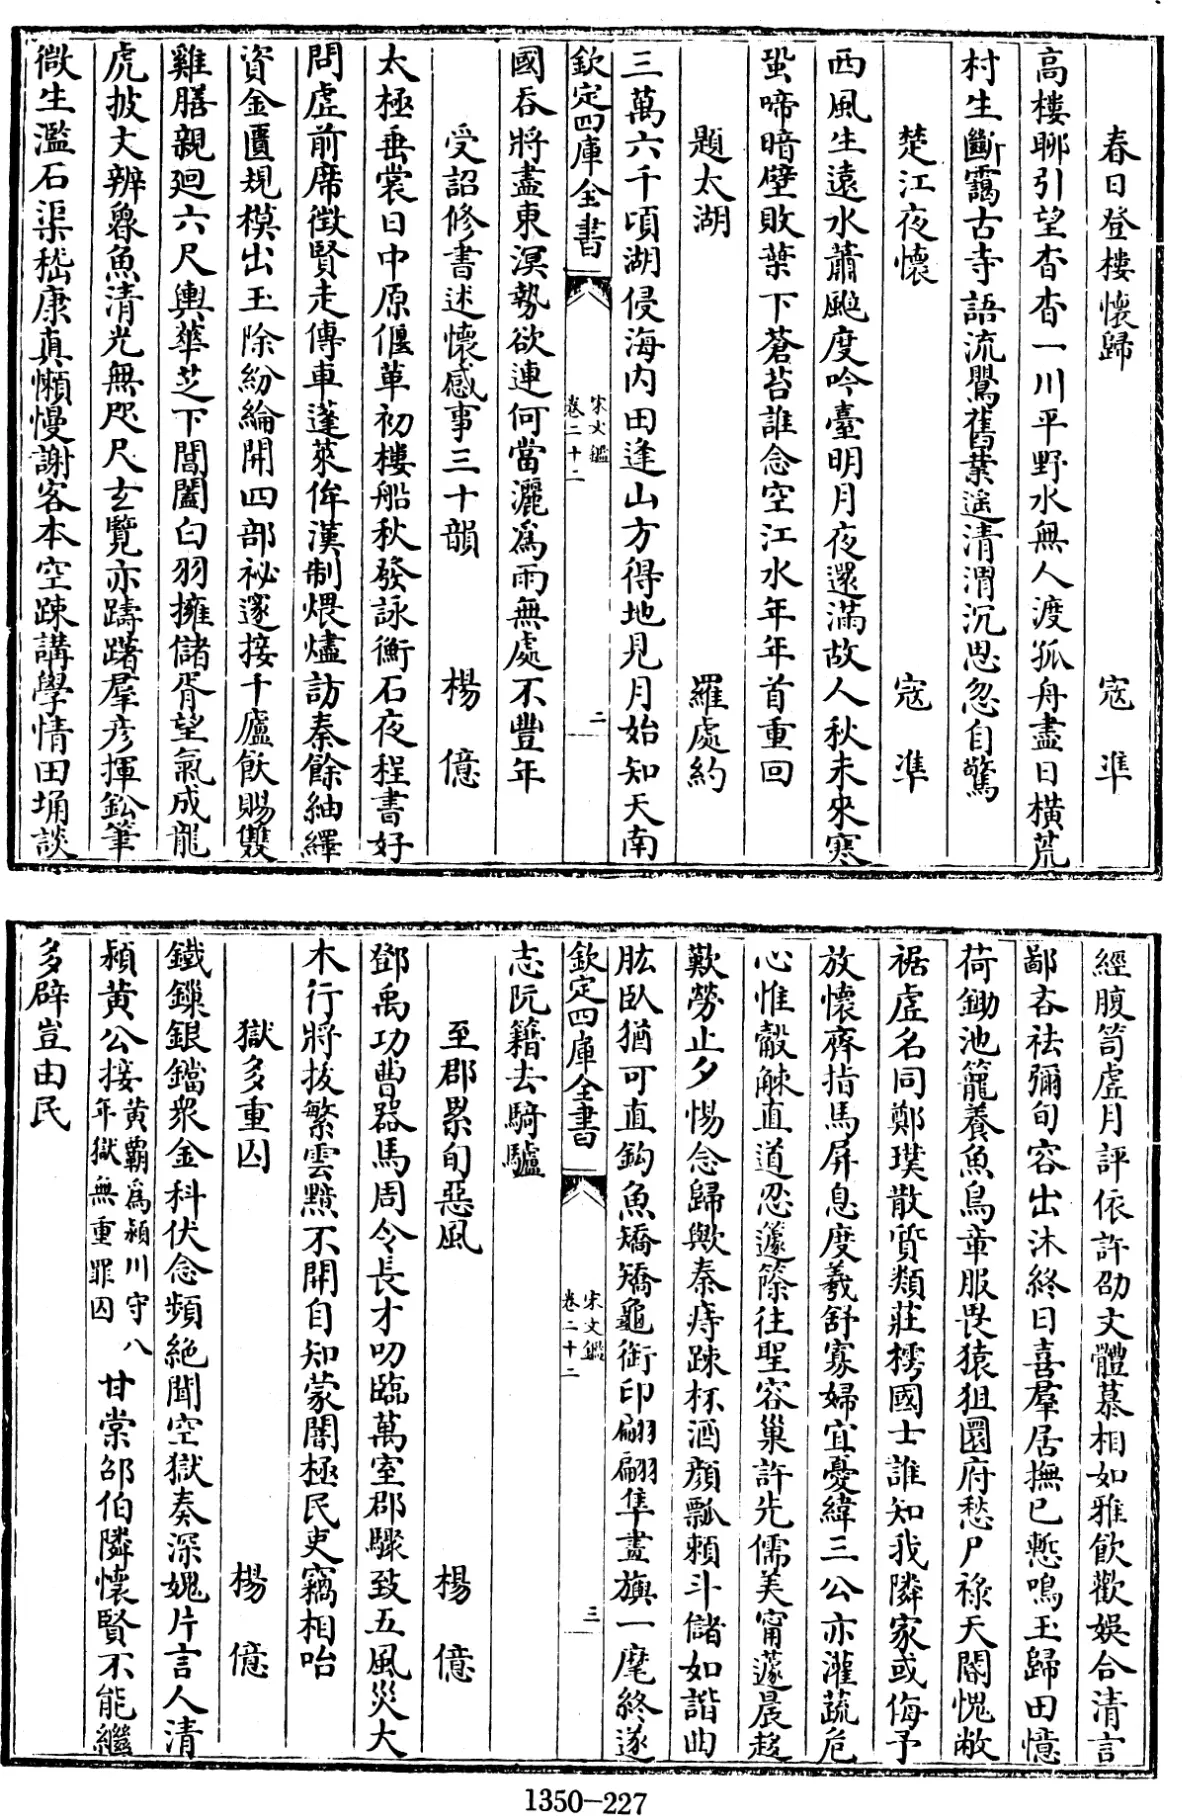 春日登樓懷歸 寇準
高樓聊引望杳杳一川平野水無人渡孤舟盡日橫荒
村生斷靄古寺語流鶯舊業遥清渭沉思忽自驚
楚江夜懷 寇準
西風生遠水蕭颭度吟臺明月夜還滿故人秋未來寒
蛩啼暗壁敗葉下蒼苔誰念空江水年年首重回
題太湖 羅處約
三萬六千頃湖侵海内田逢山方得地見月始知天南
欽定四庫全書 宋文鑑 卷二十二 二
國吞將盡東溟勢欲連何當灑爲雨無處不豐年
受詔修書述懷感事三十韻 楊億
太極垂裳日中原偃革初樓船秋發詠衡石夜程書好
問虛前席徴賢走傳車蓬萊侔漢制煨燼訪秦餘紬繹
資金匱規模出玉除紛綸開四部祕邃接十廬飲賜雙
雞膳親廻六尺輿華芝下閶闔白羽擁儲胥望氣成龍
虎披文辨魯魚清光無咫尺玄覽亦躊躇羣彦揮鉛筆
微生濫石渠嵇康真懶慢謝客本空踈講學情田埆談
經腹笥虛月評依許劭文體慕相如雅飲歡娛合清言
鄙吝袪彌旬容出沐終日喜羣居撫已慙鳴玉歸田憶
荷鋤池籠養魚鳥章服畏猿狙圜府愁尸祿天閽愧敝
裾虛名同鄭璞散質類莊樗國士誰知我隣家或侮予
放懷齊指馬屏息度羲舒寡婦宜憂緯三公亦灌蔬危
心惟觳觫直道忍籧篨往聖容巢許先儒美甯蘧晨趍
歎勞止夕惕念歸歟秦痔踈杯酒顔瓢頼斗儲如諧曲
肱臥猶可直鈎魚矯矯龜銜印翩翩隼畫旟一麾終遂
欽定四庫全書 宋文鑑 卷二十二 三
志阮籍去騎驢
至郡累旬惡風 楊億
鄧禹功曹器馬周令長才叨臨萬室郡驟致五風災大
木行將拔繁雲黯不開自知蒙闇極民吏竊相咍
獄多重囚 楊億
鐵鏁銀鐺衆金科伏念頻絶聞空獄奏深媿片言人清
潁黄公接黄霸爲潁川守八年獄無重罪囚甘棠邵伯隣懷賢不能繼
多辟豈由民
1350—227